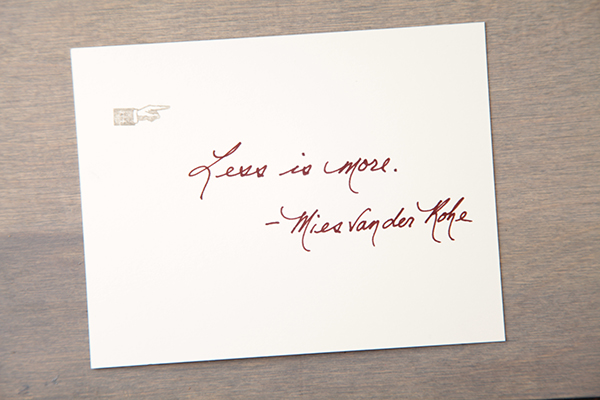 Less is more.
- Mies van der Rohe